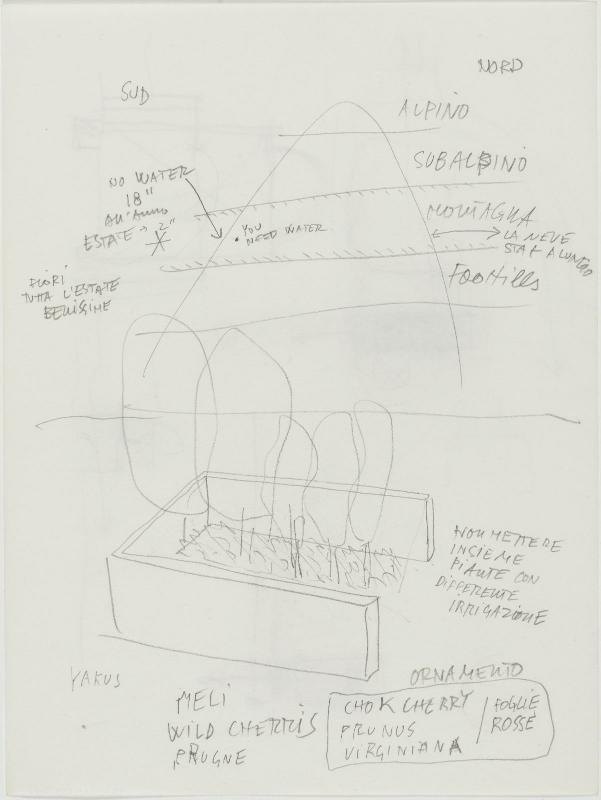 NORD
SUD
ALPINO
SUBALPINO
NO WATER
18"
ALL'ANNO
ESTATE → 2"
• YOU
NEED WATER
MONTAGNA
LA NEVE
STA
FOOTHILLS
FIORI
TUTTA L'ESTATE
BENISSIME
NON METTERE
INSIEME
PIANTE CON
DIFFERENTE
IRRIGAZIONE
YAKUS
ORNAMENTO
MELI
WILD CHERRIS
PRUGNE
CHOK CHERRY
PRUNUS
VIRGINIANA
FOGLIE
ROSSE